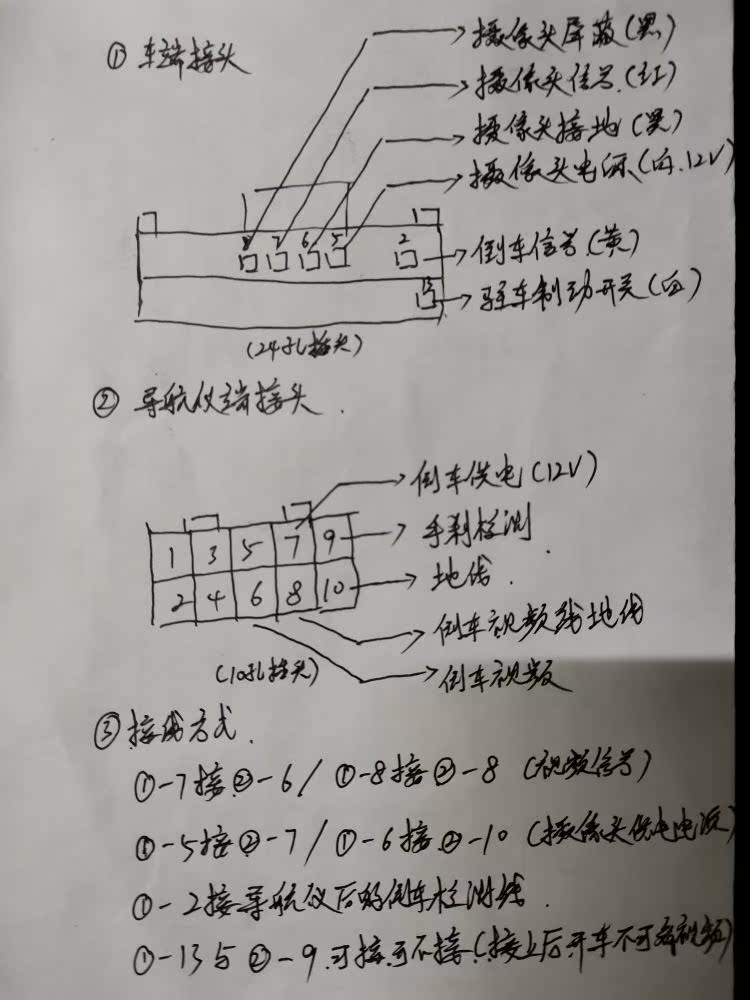 ① 车端接头
摄像头屏蔽(黑)
摄像头信号(红)
摄像头接地(黑)
摄像头电源(白.12V)
8 7 6 5 2
倒车信号(黄)
13
驻车制动开关(白)
(24孔接头)
② 导航仪端接头.
倒车供电(12V)
1 3 5 7 9
手刹检测
2 4 6 8 10
地线.
倒车视频线地线
(10孔接头)
倒车视频
③接线方式.
①-7接②-6/ ①-8接②-8 (视频信号)
①-5接②-7/ ①-6接②-10 (摄像头供电电源)
①-2接导航仪后的倒车检测线.
①-13与②-9.可接可不接(接上后开车不可看视频)